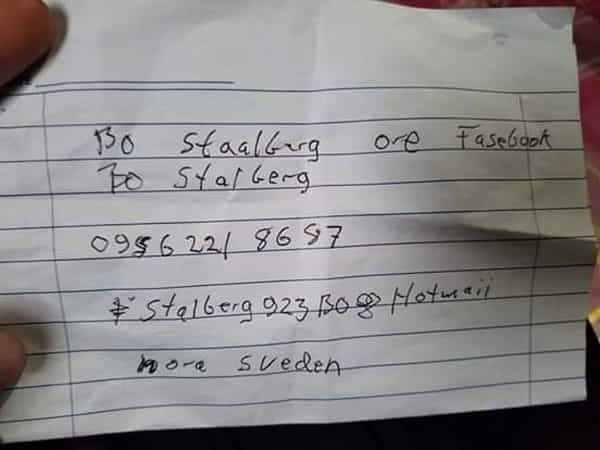 Bo Staalberg ore Fasebook
Bo Stalberg
0956221 8687
Stalberg 923 Bo @ Hotmail
nora sveden